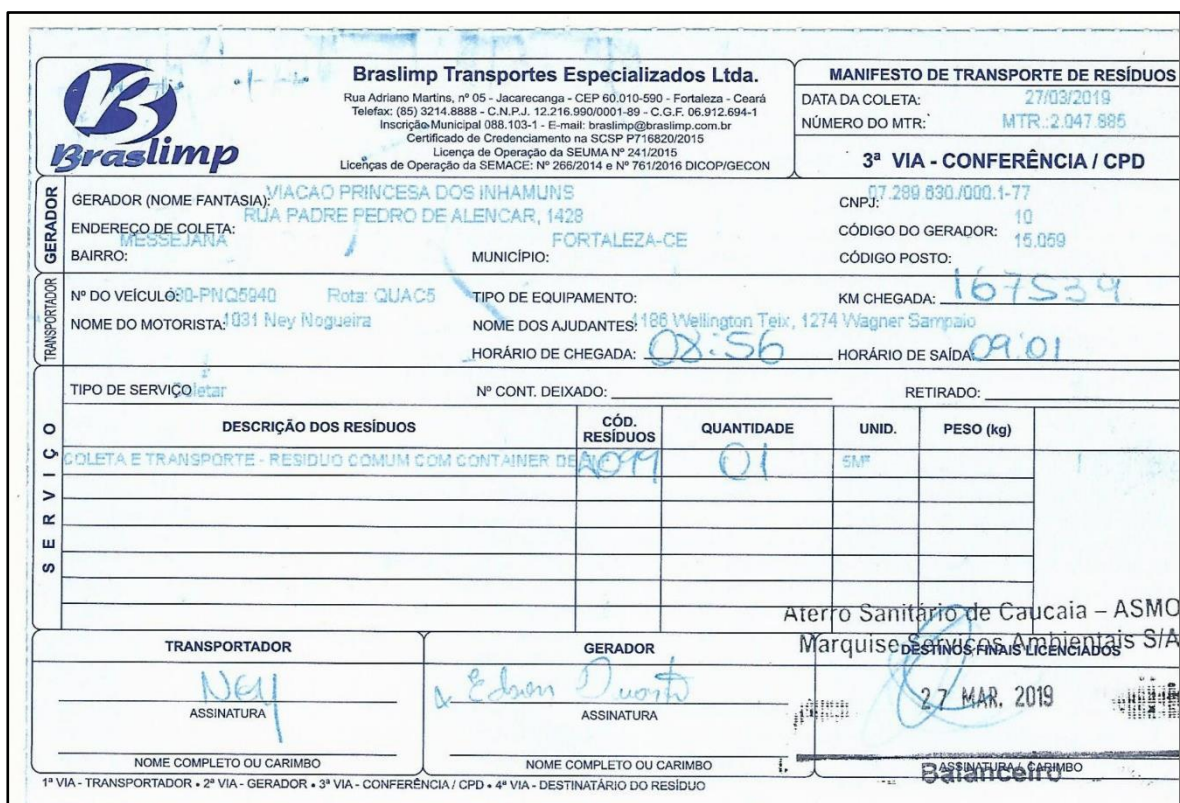 Braslimp
Braslimp Transportes Especializados Ltda.
Rua Adriano Martins, nº 05 - Jacarecanga - CEP 60.010-590 - Fortaleza - Ceará
Telefax: (85) 3214.8888 - C.N.P.J. 12.216.990/0001-89 - C.G.F. 06.912.694-1
Inscrição Municipal 088.103-1 - E-mail: braslimp@braslimp.com.br
Certificado de Credenciamento na SCSP P716820/2015
Licença de Operação da SEUMA Nº 241/2015
Licenças de Operação da SEMACE: Nº 266/2014 e Nº 761/2016 DICOP/GECON
MANIFESTO DE TRANSPORTE DE RESÍDUOS
DATA DA COLETA: 27/03/2019
NÚMERO DO MTR: MTR.:2.047.885
3ª VIA - CONFERÊNCIA / CPD
GERADOR
GERADOR (NOME FANTASIA): VIACAO PRINCESA DOS INHAMUNS
CNPJ: 07.289.630./000.1-77
ENDEREÇO DE COLETA: RUA PADRE PEDRO DE ALENCAR, 1428
CÓDIGO DO GERADOR: 10
BAIRRO: MESSEJANA MUNICÍPIO: FORTALEZA-CE
CÓDIGO POSTO: 15.059
TRANSPORTADOR
Nº DO VEÍCULO: -PNQ5940 Rota: QUAC5 TIPO DE EQUIPAMENTO: KM CHEGADA: 167539
NOME DO MOTORISTA: 1031 Ney Nogueira NOME DOS AJUDANTES: 1186 Wellington Teix, 1274 Wagner Sampaio
HORÁRIO DE CHEGADA: 08:56 HORÁRIO DE SAÍDA: 09:01
SERVIÇO
TIPO DE SERVIÇO Coletar Nº CONT. DEIXADO: RETIRADO:
DESCRIÇÃO DOS RESÍDUOS CÓD. RESÍDUOS QUANTIDADE UNID. PESO (kg)
COLETA E TRANSPORTE - RESIDUO COMUM COM CONTAINER DE A099 01
Aterro Sanitário de Caucaia – ASMO
Marquise Serviços Ambientais S/A
TRANSPORTADOR GERADOR DESTINOS FINAIS LICENCIADOS
Ney Edson Duarte 27 MAR. 2019
ASSINATURA ASSINATURA
NOME COMPLETO OU CARIMBO NOME COMPLETO OU CARIMBO ASSINATURA / CARIMBO
Balanceiro
1ª VIA - TRANSPORTADOR • 2ª VIA - GERADOR • 3ª VIA - CONFERÊNCIA / CPD • 4ª VIA - DESTINATÁRIO DO RESÍDUO